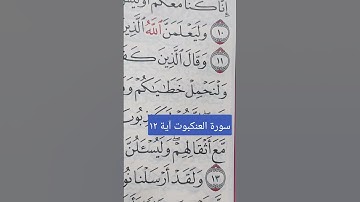 إِنَّا كُنَّا مَعَكُمْ أَوَلَيْسَ
١٠ وَلَيَعْلَمَنَّ ٱللَّهُ ٱلَّذِينَ
١١ وَقَالَ ٱلَّذِينَ كَفَ
وَلْنَحْمِلْ خَطَٰيَٰكُمْ وَ
سورة العنكبوت آية ١٢
مَّعَ أَثْقَالِهِمْ ۖ وَلَيُسْـَٔلُنَّ
١٣ وَلَقَدْ أَرْسَلْنَا نُو